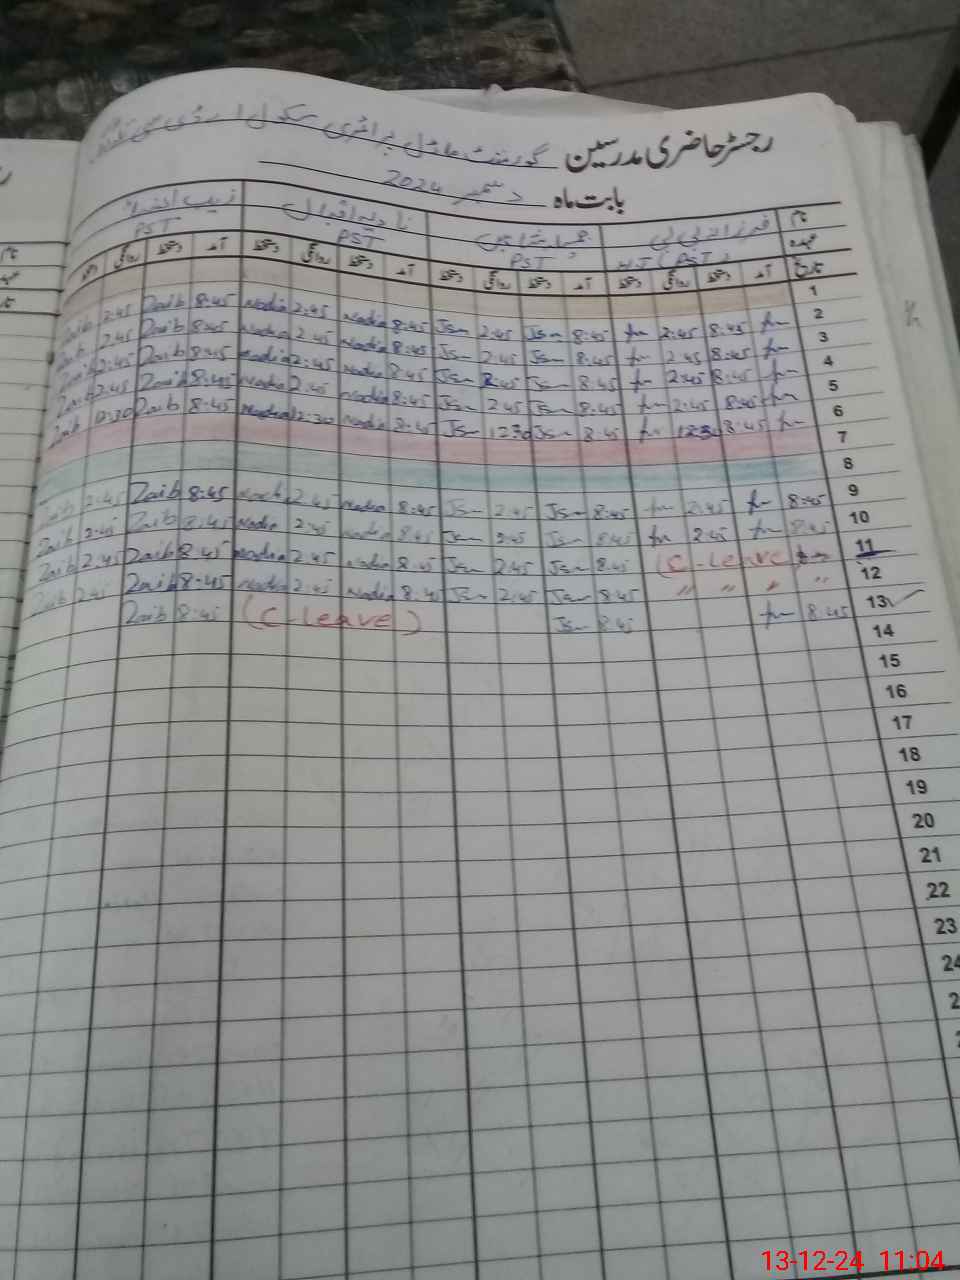 رجسٹر حاضری مدرسین گورنمنٹ ماڈل پرائمری سکول
بابت ماہ دسمبر 2024
نام فرزانہ بی بی نادیہ اقبال زیب
عہدہ H.T (PST) PST PST PST
تاریخ آمد دستخط روانگی دستخط آمد دستخط روانگی دستخط آمد دستخط روانگی دستخط آمد دستخط روانگی دستخط
1
2:45 Zaib 8:45 Nadia 2:45 Nadia 8:45 Jsm 2:45 Jsm 8:45 fm 2:45 8:45 fm 2
2:45 Zaib 8:45 Nadia 2:45 Nadia 8:45 Jsm 2:45 Jsm 8:45 fm 2:45 8:45 fm 3
Zaib 2:45 Zaib 8:45 Nadia 2:45 Nadia 8:45 Jsm 2:45 Jsm 8:45 fm 2:45 8:45 fm 4
Zaib 2:45 Zaib 8:45 Nadia 2:45 Nadia 8:45 Jsm 2:45 Jsm 8:45 fm 2:45 8:45 fm 5
Zaib 12:30 Zaib 8:45 Nadia 12:30 Nadia 8:45 Jsm 12:30 Jsm 8:45 fm 12:30 8:45 fm 6
7
8
Zaib 2:45 Zaib 8:45 2:45 Nadia 8:45 Jsm 2:45 Jsm 8:45 fm 2:45 fm 8:45 9
Zaib 2:45 Zaib 8:45 Nadia 2:45 Nadia 8:45 Jsm 2:45 Jsm 8:45 fm 2:45 fm 8:45 10
Zaib 2:45 Zaib 8:45 Nadia 2:45 Nadia 8:45 Jsm 2:45 Jsm 8:45 (C-Leave) 11
Zaib 2:45 Zaib 8:45 Nadia 2:45 Nadia 8:45 Jsm 2:45 Jsm 8:45 〃 〃 〃 〃 12
Zaib 8:45 (C-Leave) Jsm 8:45 fm 8:45 13
14
15
16
17
18
19
20
21
22
23
24
13-12-24 11:04